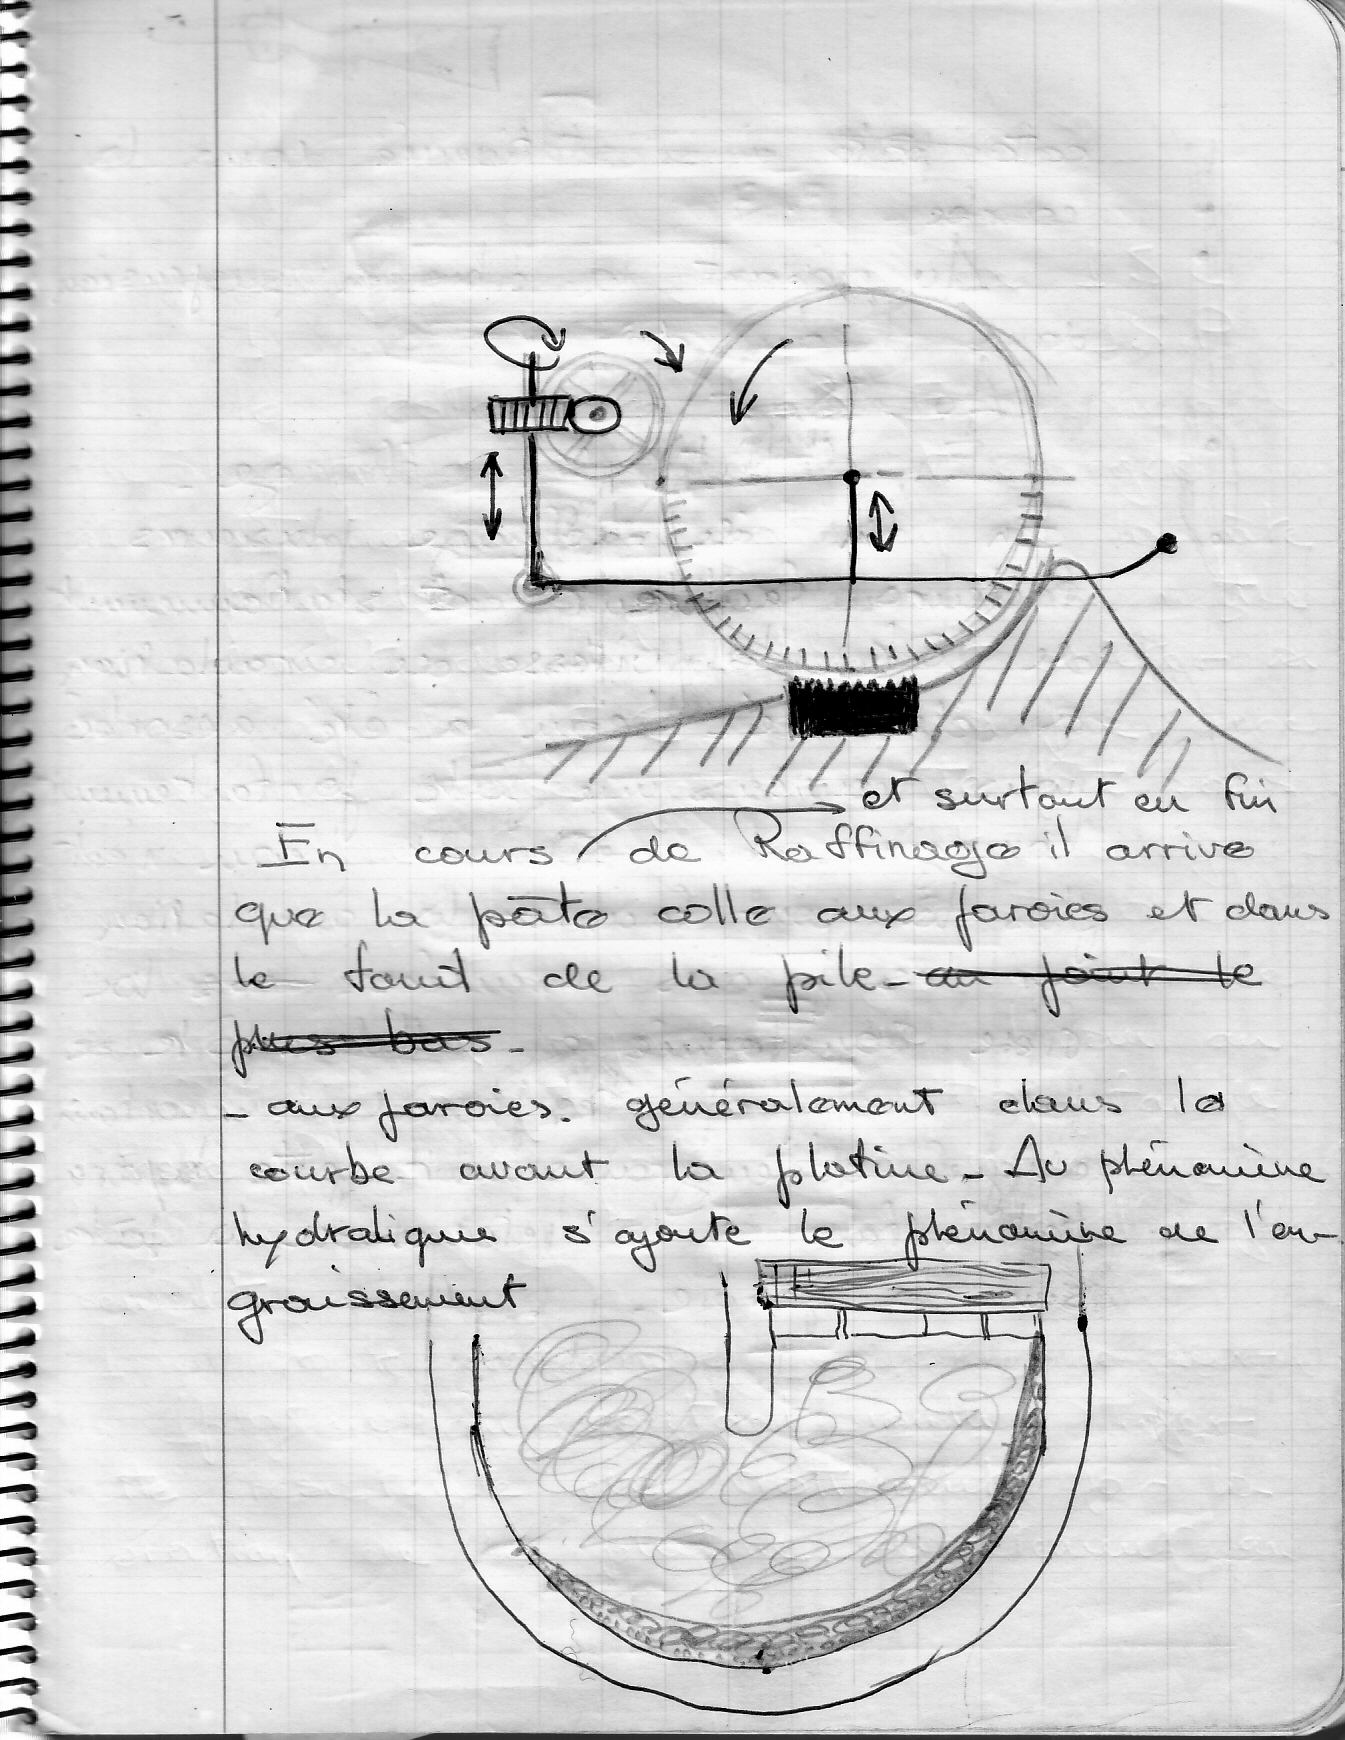 et surtout en fin
En cours de Raffinage il arrive
que la pâte colle aux paroies et dans
le fond de la pile - au point le
plus bas -
- aux paroies. généralement dans la
courbe avant la platine - Au phénomène
hydralique s'ajoute le phénomène de l'en-
graissement